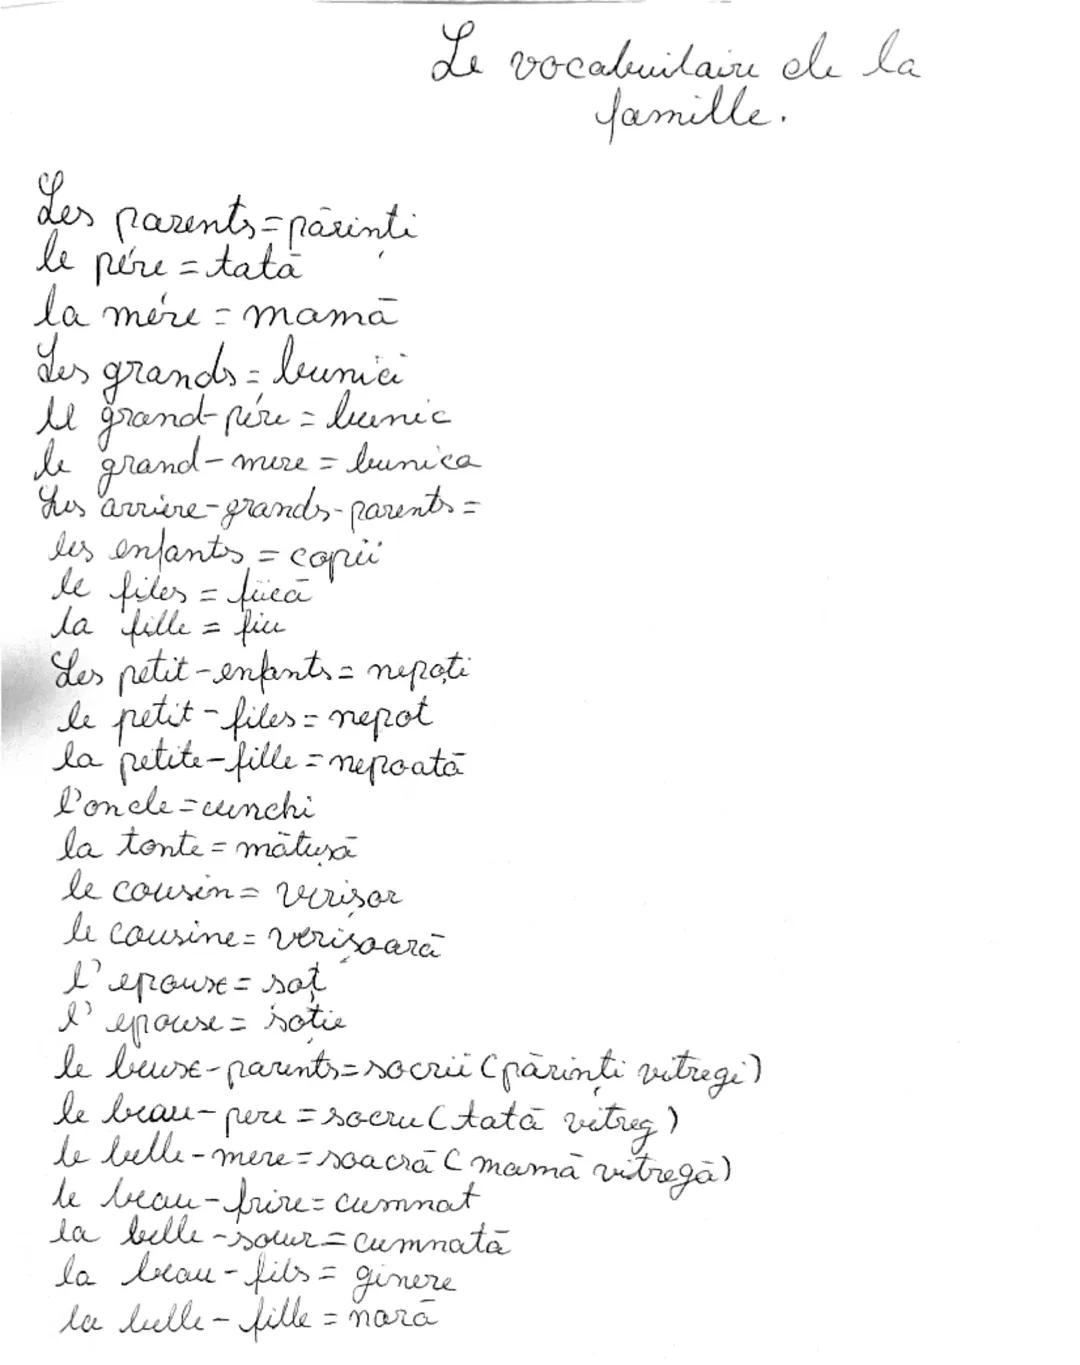 Le vocabuilaire de la
famille.
Les parents=părinți
le pére = tată
la mére = mamă
Les grands = bunici
le grand-pére = bunic
le grand-mere = bunica
Les arriere-grands-parents =
les enfants = copii
le files = fiică
la fille = fiu
Les petit-enfants = nepoți
le petit-files = nepot
la petite-fille = nepoată
l'oncle = uunchi
la tonte = mătușă
le cousin = verișor
le cousine = verișoară
l'epouse = soț
l'epouse = soție
le beuse-parents = socrii (părinți vitregi)
le beau-pere = socru (tată vitreg)
le belle-mere = soacră (mamă vitregă)
le beau-frire = cumnat
la belle-sour = cumnată
la beau-fils = ginere
la belle-fille = noră